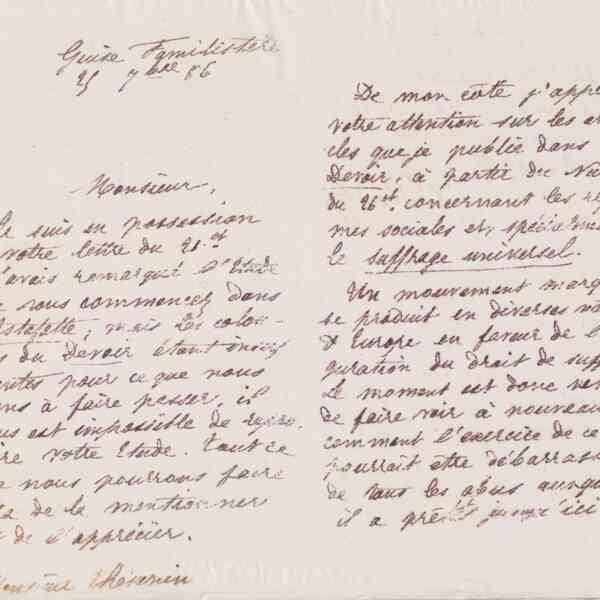 Guise Familistère
25 7bre 86
Monsieur,
Je suis en possession
votre lettre du 21 ct
J'avais remarqué l'Etude
vous commencez dans
Estafette; mais les colon-
du Devoir étant insuf
pour ce que nous
à faire passer, il
est impossible de repro
votre Etude. Tout ce
nous pourrons faire
de la mentionner
de l'apprécier.
Monsieur
De mon côté j'appe
votre attention sur les ar
cles que je publie dans
Devoir, à partir du Nu
du 26 ct, concernant les réf
mes sociales et, spécialeme
le suffrage universel.
Un mouvement marq
se produit en diverses na
d'Europe en faveur de l'
guration du droit de suff
Le moment est donc ven
de faire voir à nouveau
comment l'exercice de ce
pourrait être débarrass
de tous les abus auxqu
il a prêté jusqu'ici